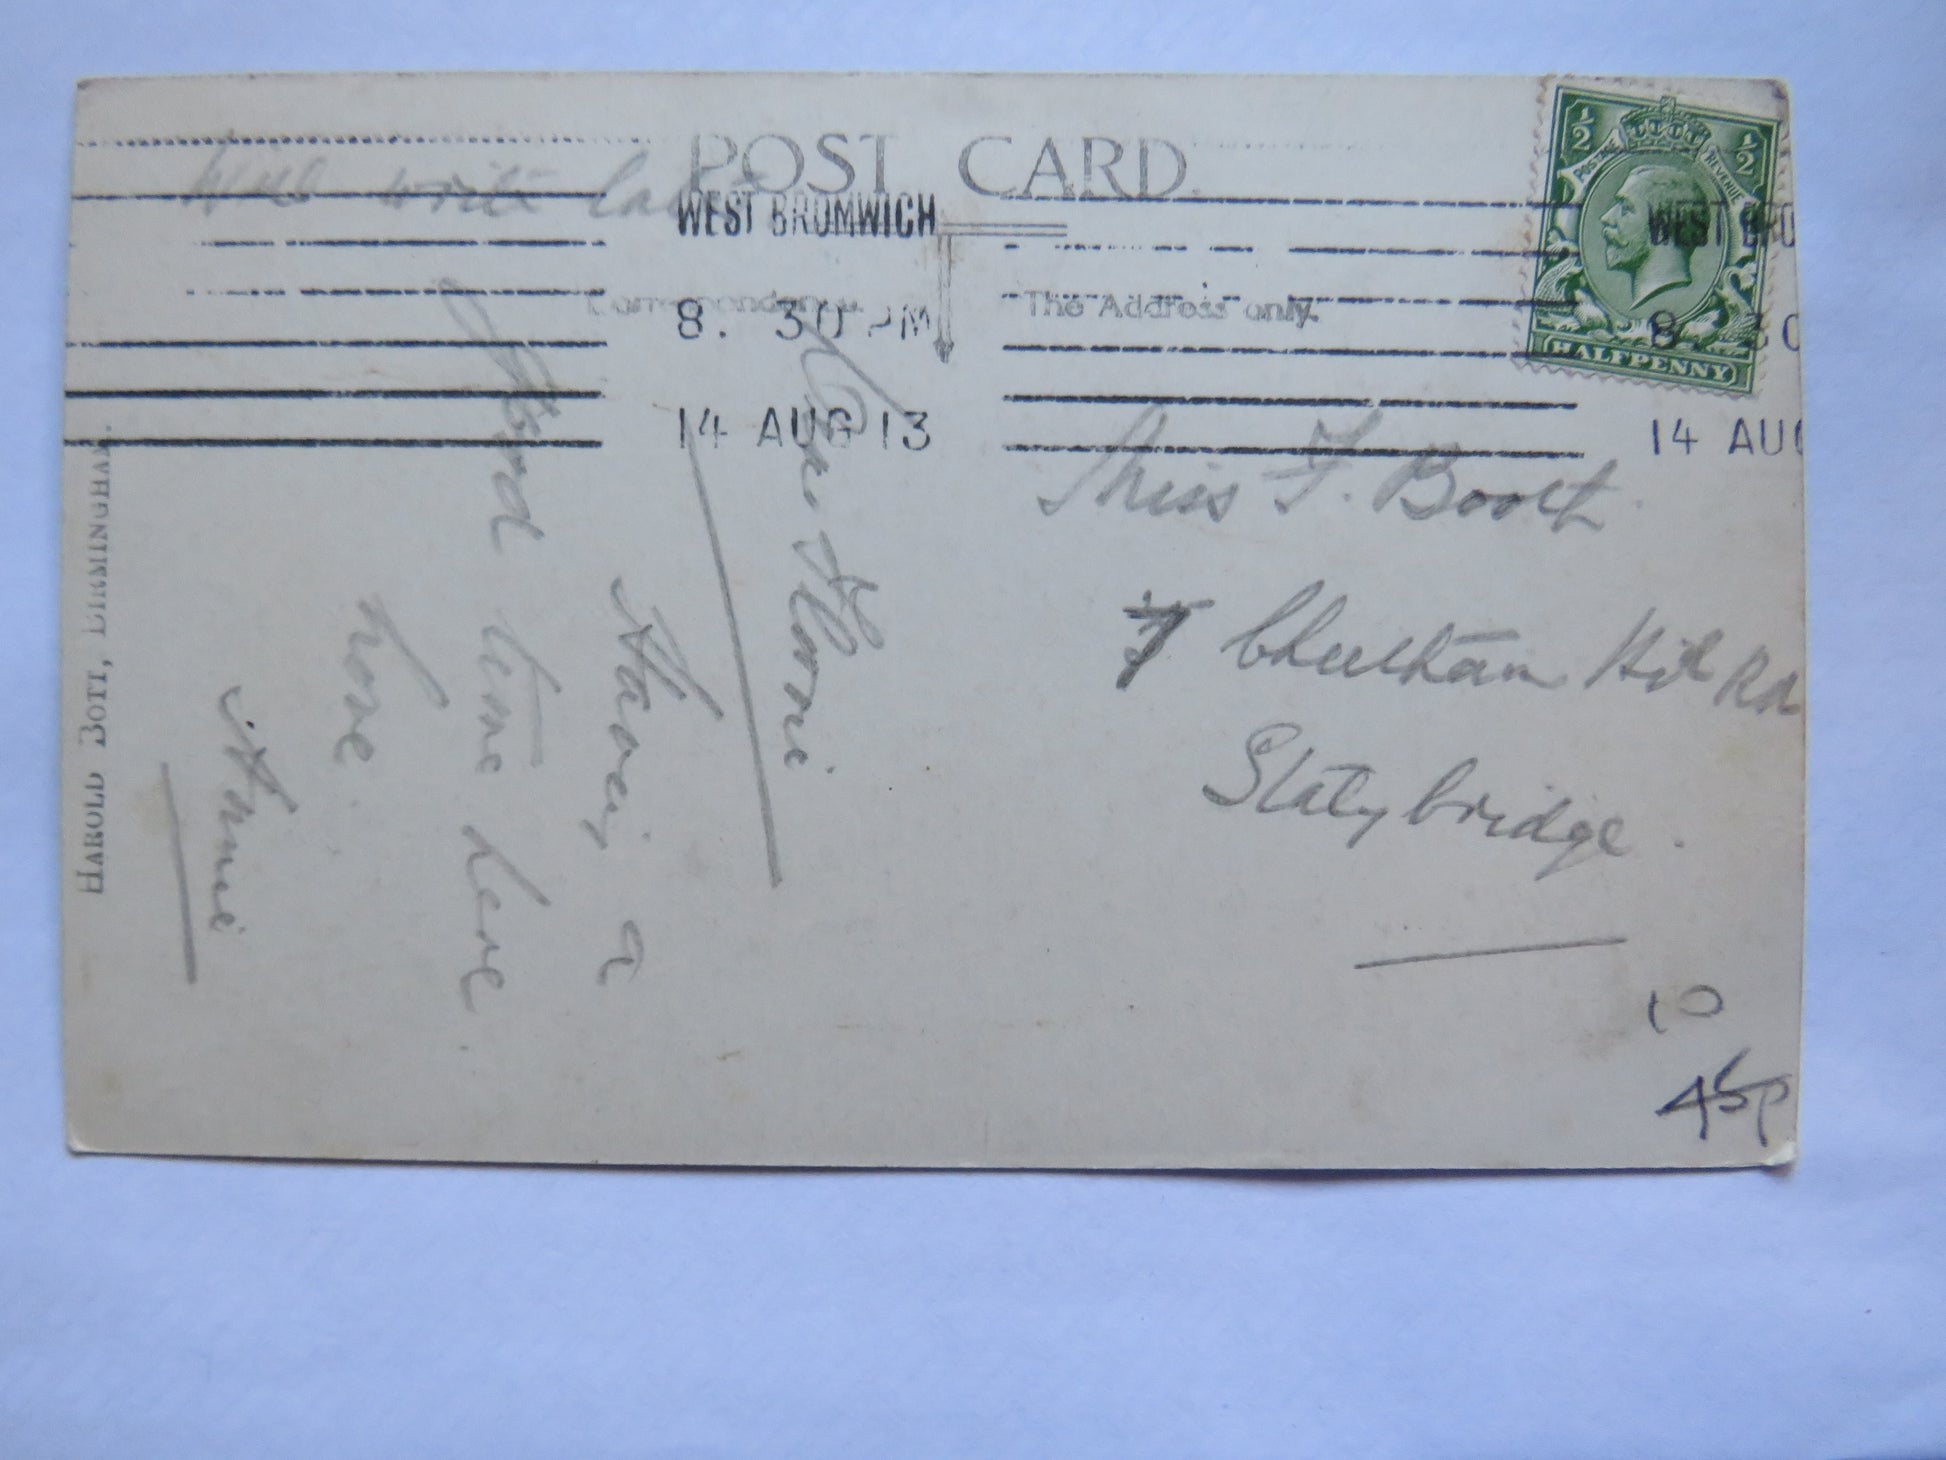 Will write later
POST CARD.
WEST BROMWICH
8. 30 PM
14 AUG 13
Correspondence.
The Address only.
½ ½
POSTAGE REVENUE
HALFPENNY
WEST BRO
8 30
14 AUG
Dear Florrie
Having a
good time here
love.
Annie
Miss F. Booth.
7 Cheetham Hill Rd
Stalybridge.
10
45p
HAROLD BOTT, BIRMINGHAM.